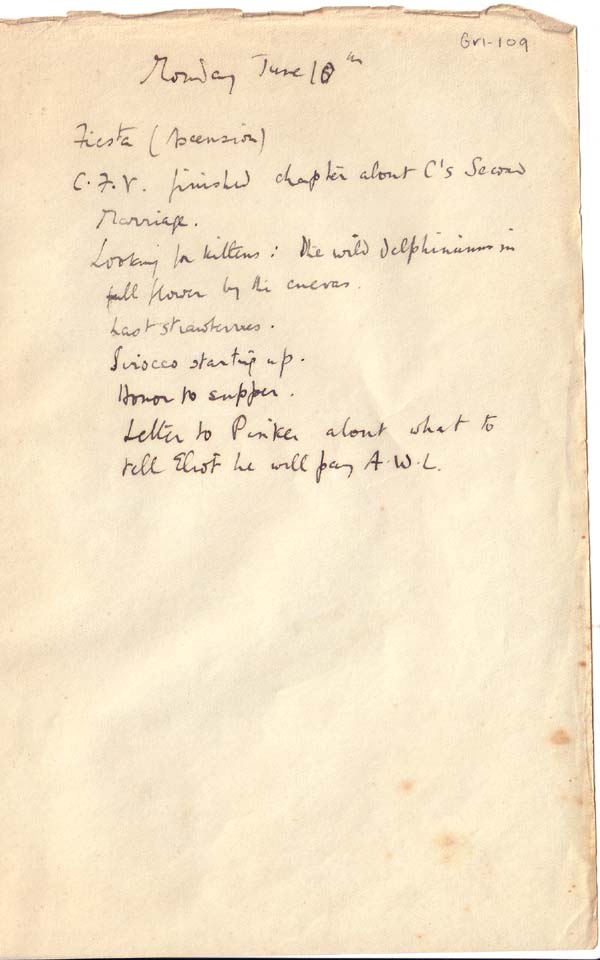 GVI-109
Monday June 10th
Fiesta (Ascension)
C.F.V. finished chapter about C's Second
Marriage.
Looking for kittens: the wild delphiniums in
full flower by the cuevas.
Last strawberries.
Sirocco starting up.
Honor to supper.
Letter to Pinker about what to
tell Eliot he will pay A.W.L.